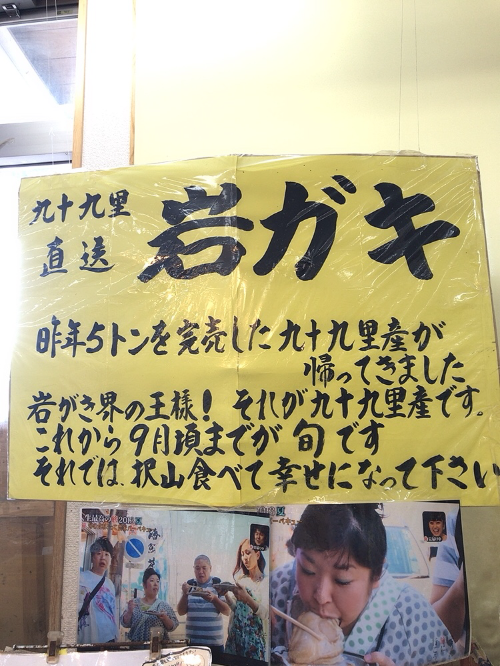 九十九里
直送
岩ガキ
昨年5トンを完売した九十九里産が
帰ってきました
岩がき界の王様！それが九十九里産です。
これから9月頃までが旬です
それでは、沢山食べて幸せになって下さい